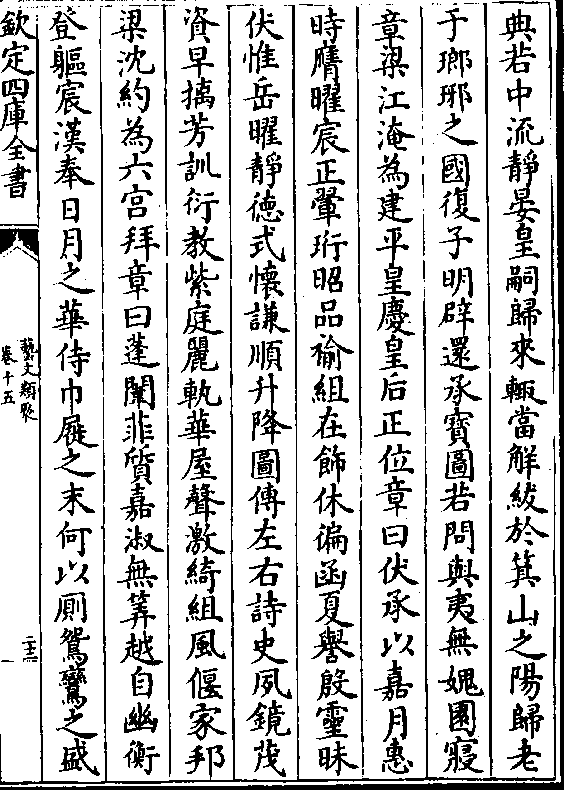 典若中流靜晏皇嗣歸來輙當解紱於箕山之陽歸老
于瑯琊之國復子明辟還承寳圖若問與夷無媿園寢
章梁江淹為建平皇慶皇后正位章曰伏承以嘉月惠
時膺曜宸正翬珩昭品褕組在飾休徧函夏譽殷靈昧
伏惟岳曜靜徳式懐謙順升降圖傅左右詩史夙鏡茂
資早摛芳訓衍教紫庭麗軌華屋聲激綺組風偃家邦
梁沈約為六宫拜章曰蓬闈菲質嘉淑無筭越自幽衡
登軀宸漢奉日月之華侍巾屣之末何以厠鴛鸞之盛
欽定四庫全書
藝文類聚
卷十五
二十三